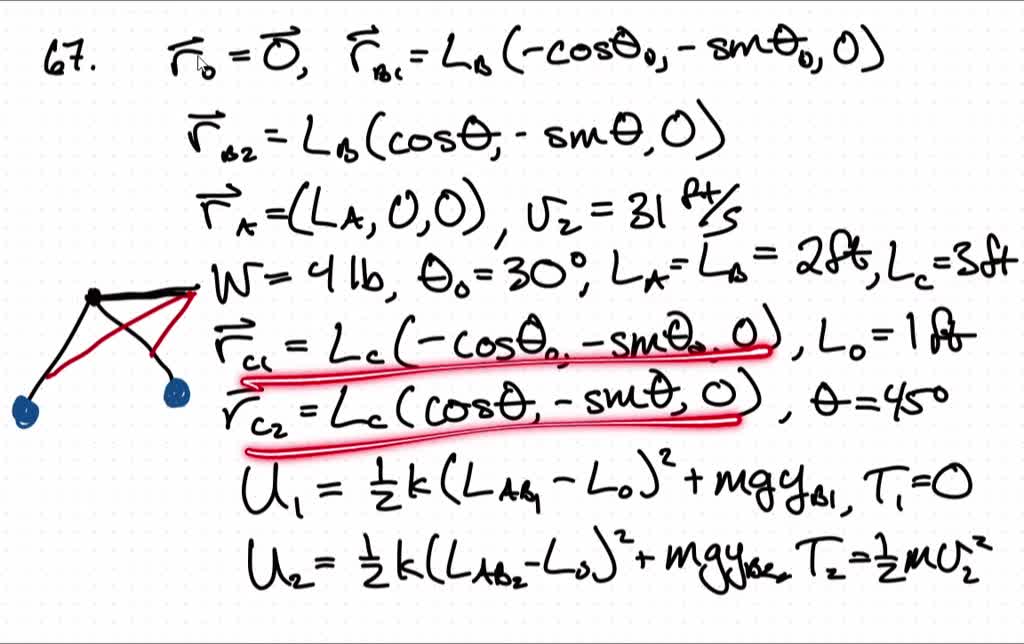 67. r⃗₀ = 0⃗, r⃗_B1 = L_B (-cosθ₀, - sinθ₀, 0)
r⃗_B2 = L_B (cosθ, - sinθ, 0)
r⃗_A = (L_A, 0, 0), v₂ = 31 ft/s
W = 4 lb, θ₀ = 30°, L_A = L_B = 2ft, L_C = 3ft
r⃗_C1 = L_C (-cosθ₀, -sinθ₀, 0), L₀ = 1 ft
r⃗_C2 = L_C (cosθ, -sinθ, 0), θ = 45°
U₁ = ½ k (L_AB1 - L₀)² + mgy_B1, T₁ = 0
U₂ = ½ k (L_AB2 - L₀)² + mgy T₂ = ½ mv₂²